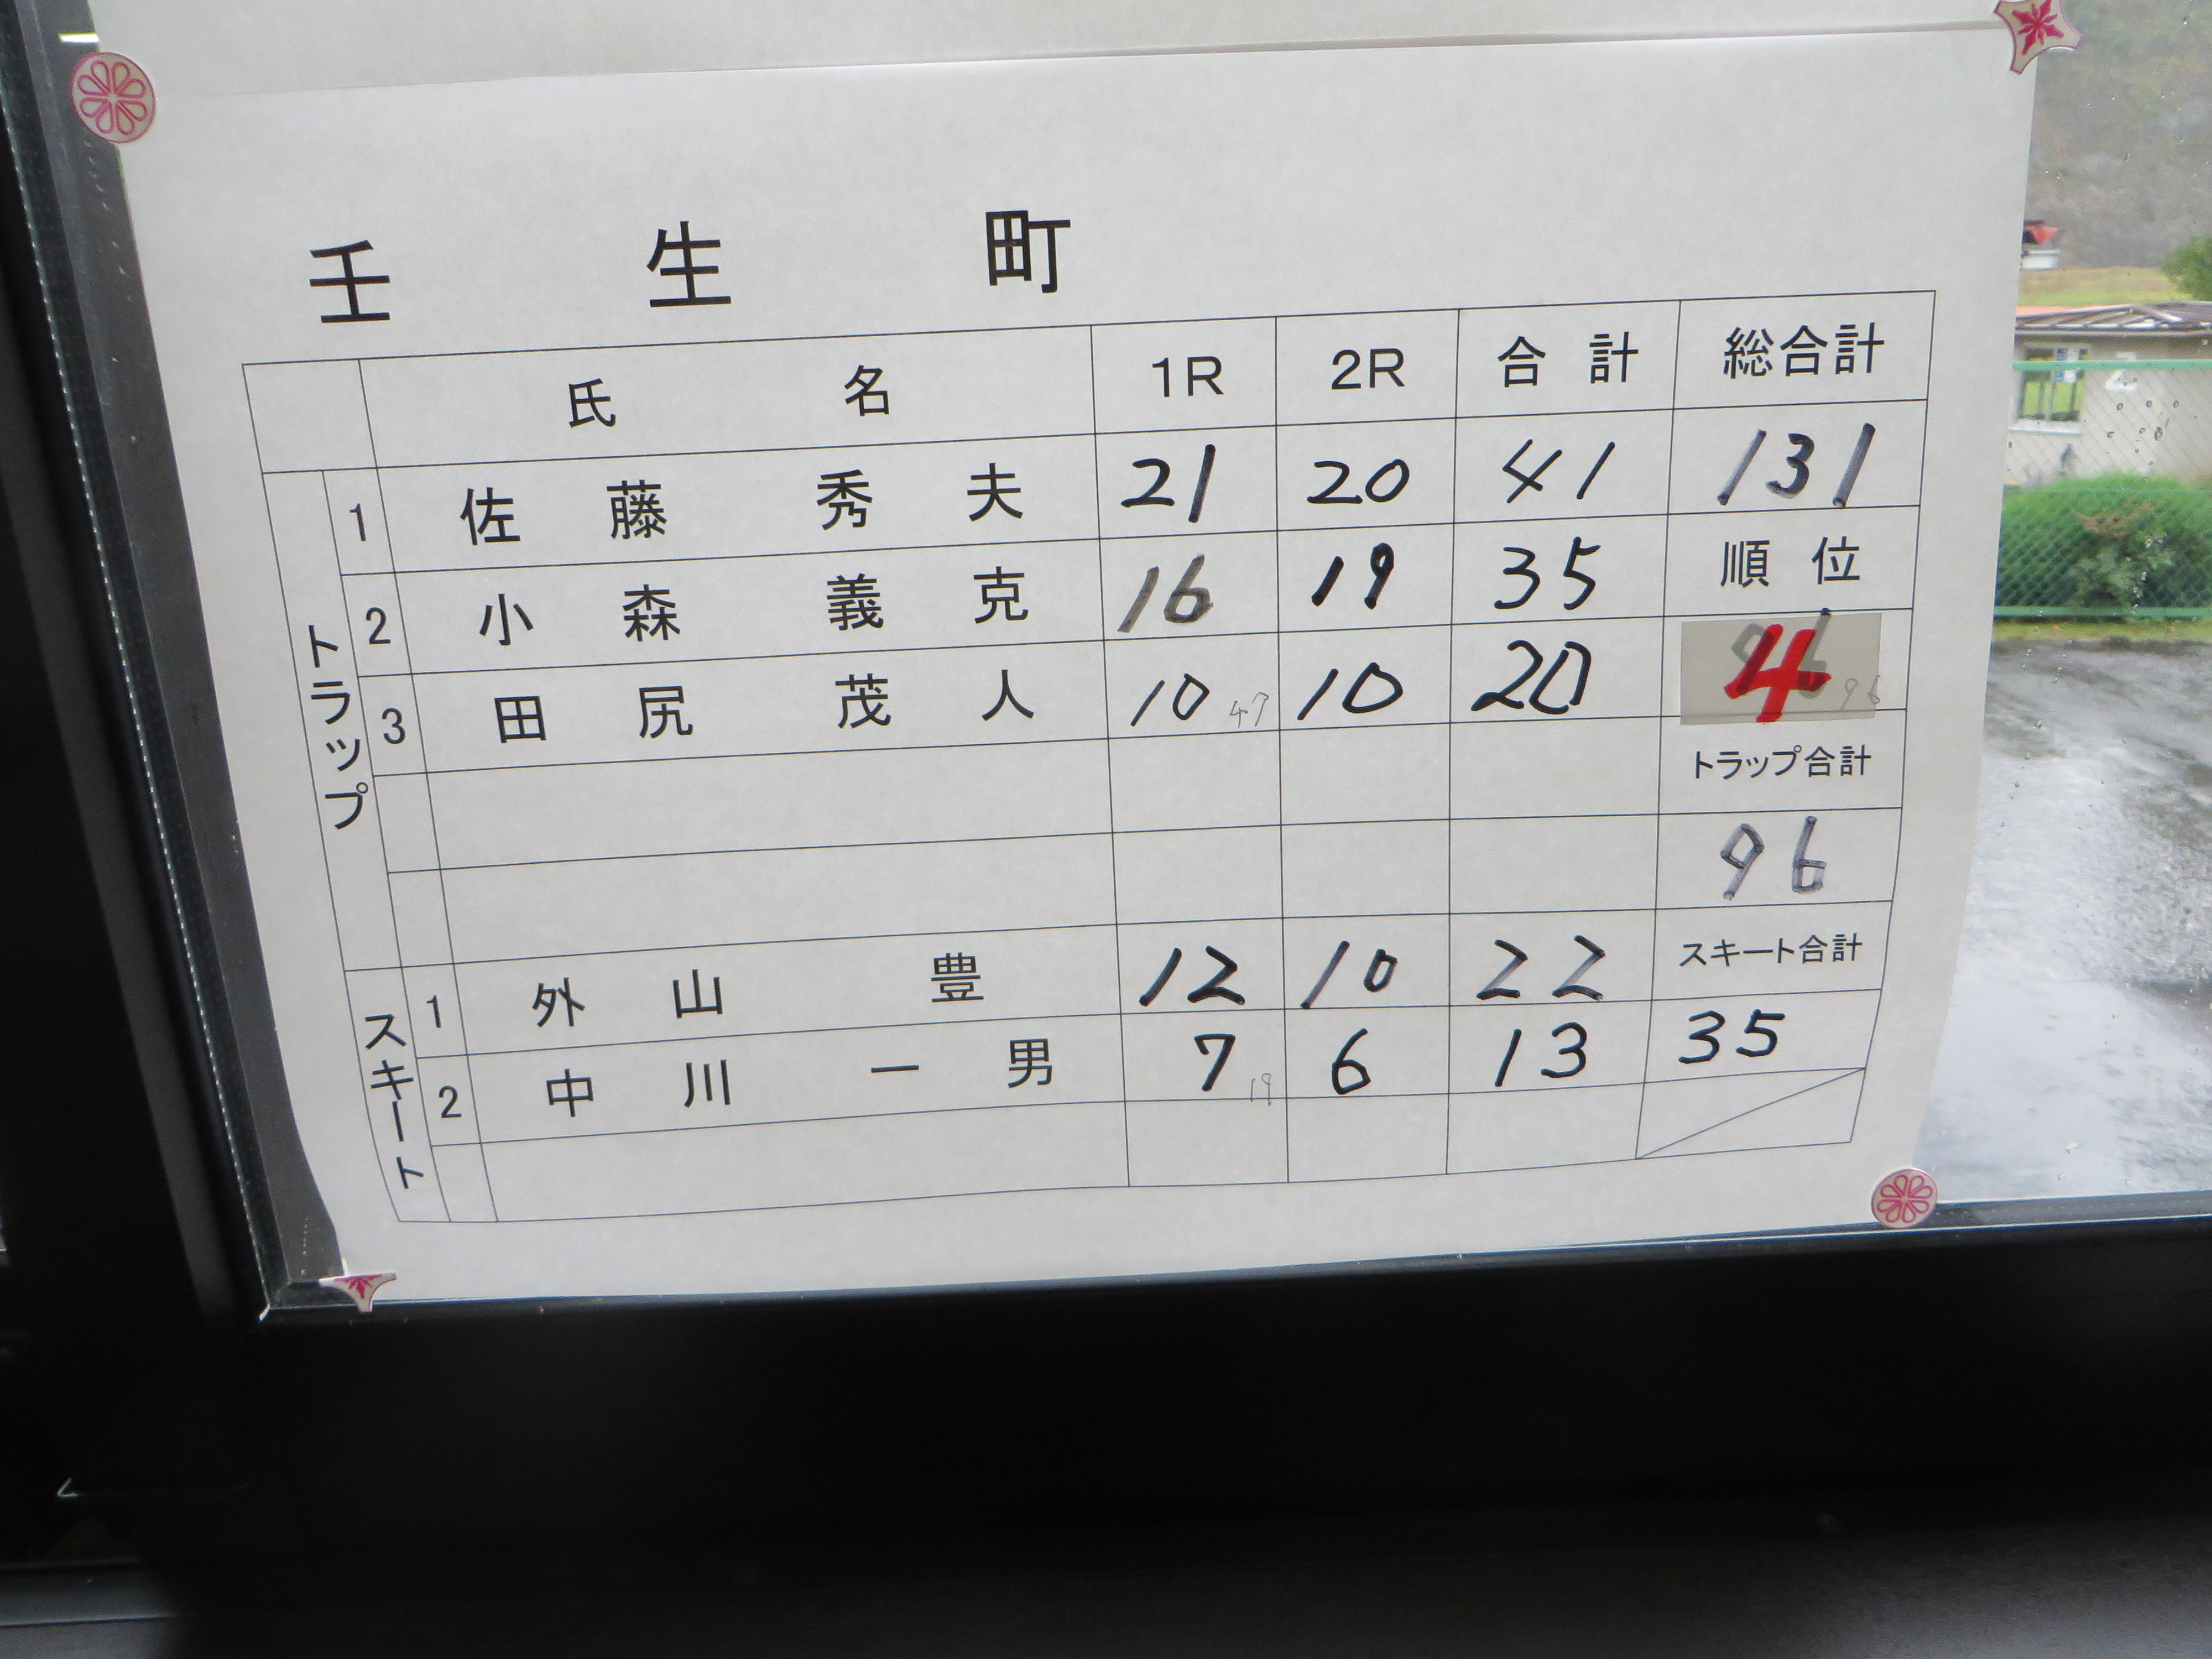 壬生町
氏名 1R 2R 合計 総合計
トラップ
1 佐藤 秀夫 21 20 41 131
2 小森 義克 16 19 35 順位
3 田尻 茂人 10 47 10 20 4 96
トラップ合計
96
スキート
1 外山 豊 12 10 22 スキート合計
2 中川 一男 7 19 6 13 35